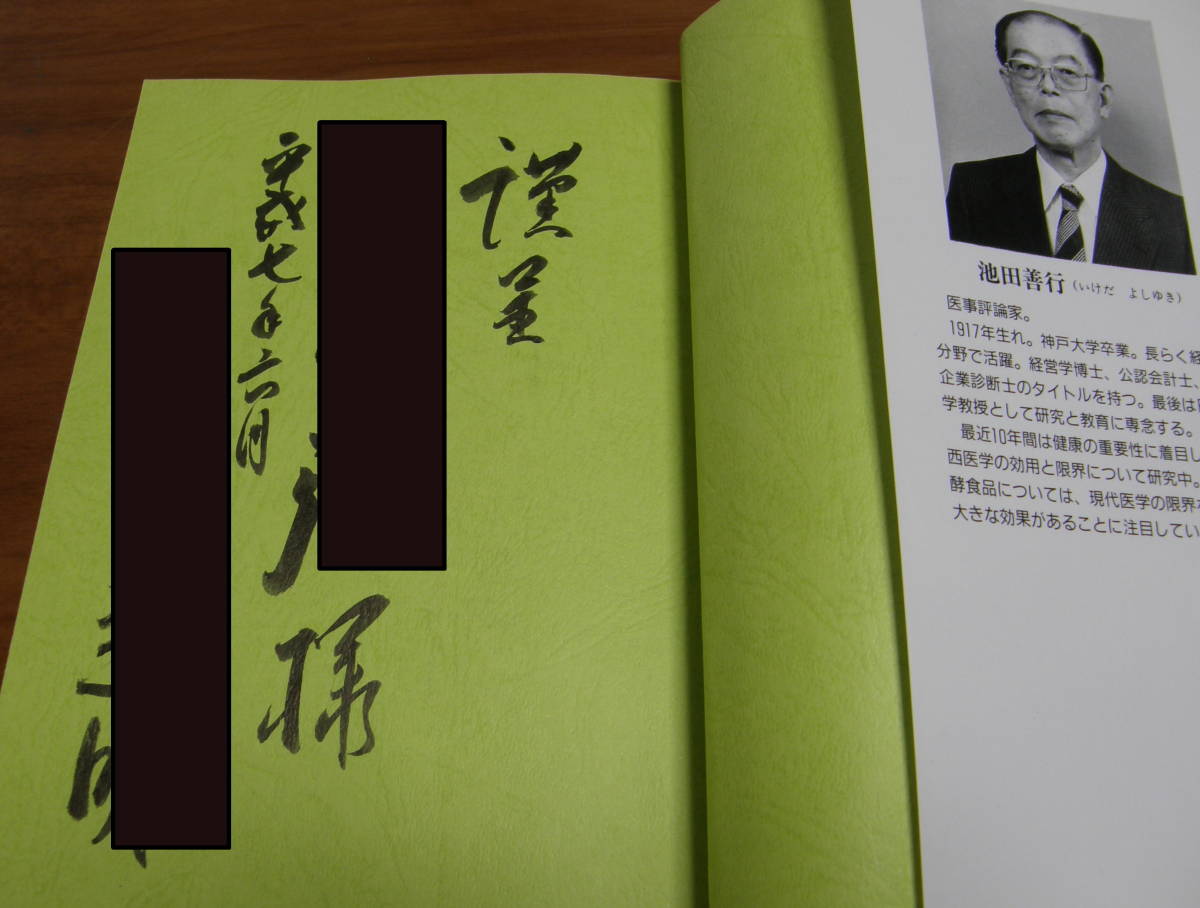 謹呈
様
平成七年六月
池田善行（いけだ よしゆき）
医事評論家。
1917年生れ。神戸大学卒業。長らく経
分野で活躍。経営学博士、公認会計士、
企業診断士のタイトルを持つ。最後は
学教授として研究と教育に専念する。
最近10年間は健康の重要性に着目し
西医学の効用と限界について研究中。
酵食品については、現代医学の限界
大きな効果があることに注目してい